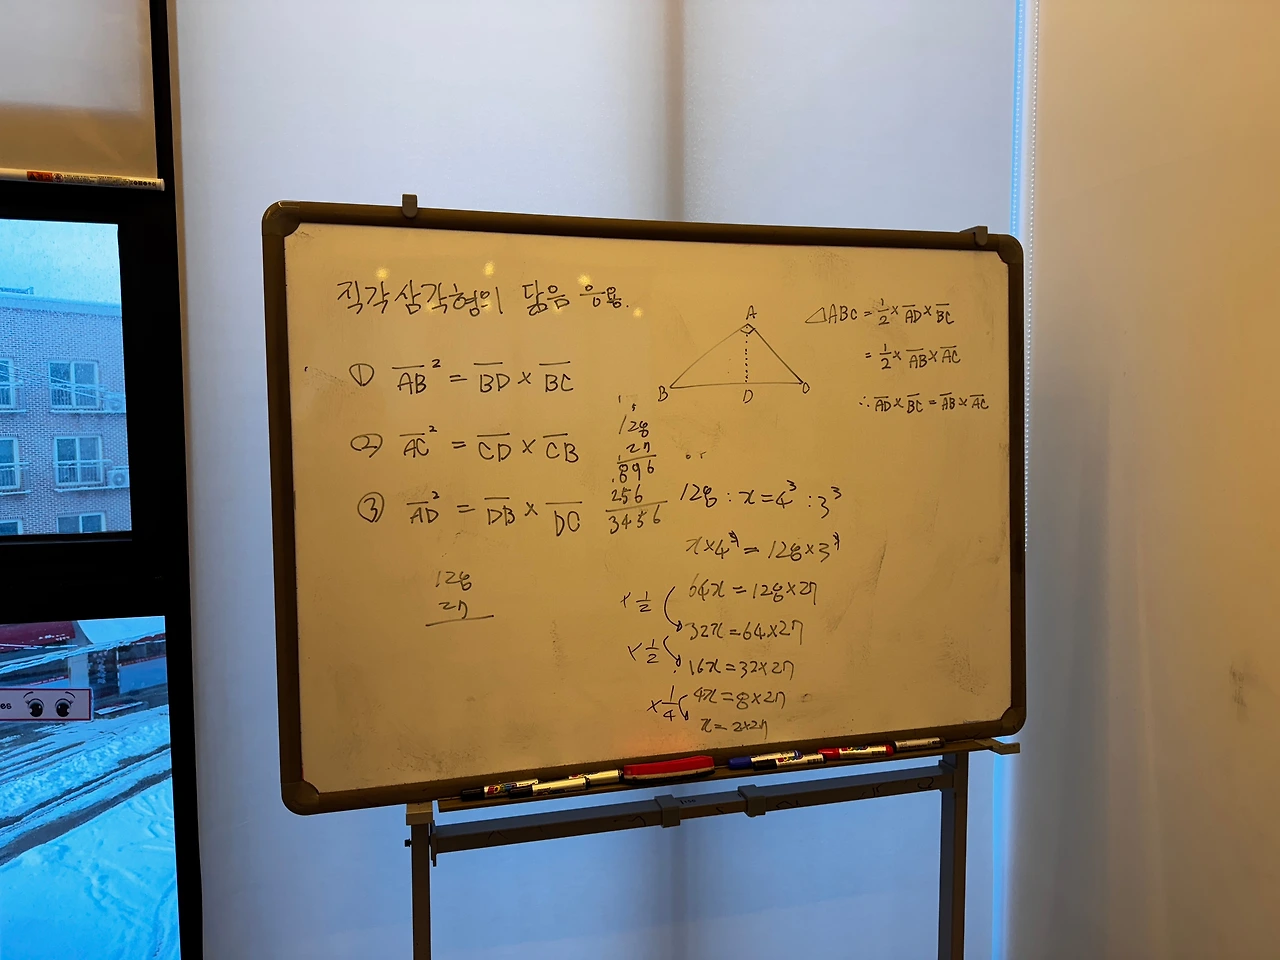 직각삼각형의 닮음 응용.
① AB² = BD × BC
② AC² = CD × CB
③ AD² = DB × DC
128
27
A
B
D
C
△ABC = 1/2 × AD × BC
= 1/2 × AB × AC
∴ AD × BC = AB × AC
128
27
896
256
3456
128 : x = 4³ : 3³
x × 4³ = 128 × 3³
64x = 128 × 27
× 1/2
32x = 64 × 27
× 1/2
16x = 32 × 27
× 1/4
4x = 8 × 27
x = 2 × 27
es